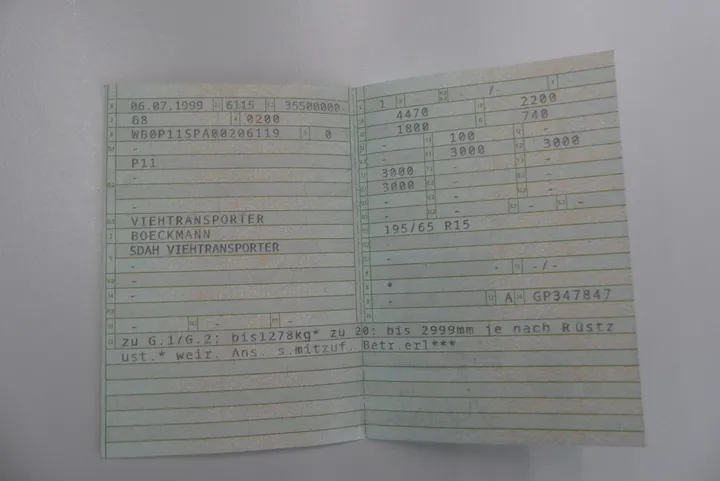 06.07.1999 6115 35500000
68 0200
WB0P11SPA00206119 0
-
P11
-
-
VIEHTRANSPORTER
BOECKMANN
SDAH VIEHTRANSPORTER
-
-
-
- -
1 - / -
4470 2200
1800 740
- 100 -
- 3000 3000
3000 - -
3000 - -
- -
- - - -
195/65 R15
-
- - -/-
*
- A GP347847
zu G.1/G.2: bis1278kg* zu 20: bis 2999mm je nach Rüstz
ust.* weir. Ans. s.mitzuf. Betr.erl***